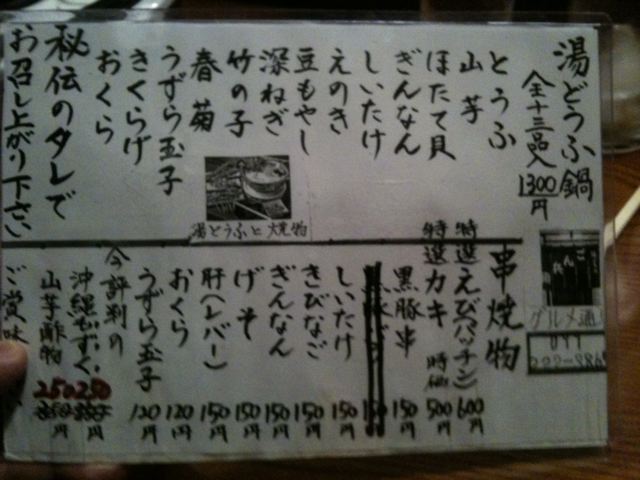 湯どうふ鍋
全十三品入
1300円
とうふ
山芋
ほたて貝
ぎんなん
しいたけ
えのき
豆もやし
深ねぎ
竹の子
春菊
うずら玉子
きくらげ
おくら
秘伝のタレで
お召し上がり下さい
湯どうふと焼物
串焼物
特選えび(パッチン) 600円
特選カキ 時価 500円
黒豚串 150円
しいたけ 150円
きびなご 150円
ぎんなん 150円
げそ 150円
肝(レバー) 150円
おくら 120円
うずら玉子 120円
今評判の
沖縄もずく 250円
山芋酢物 250円
ご賞味
グルメ通り